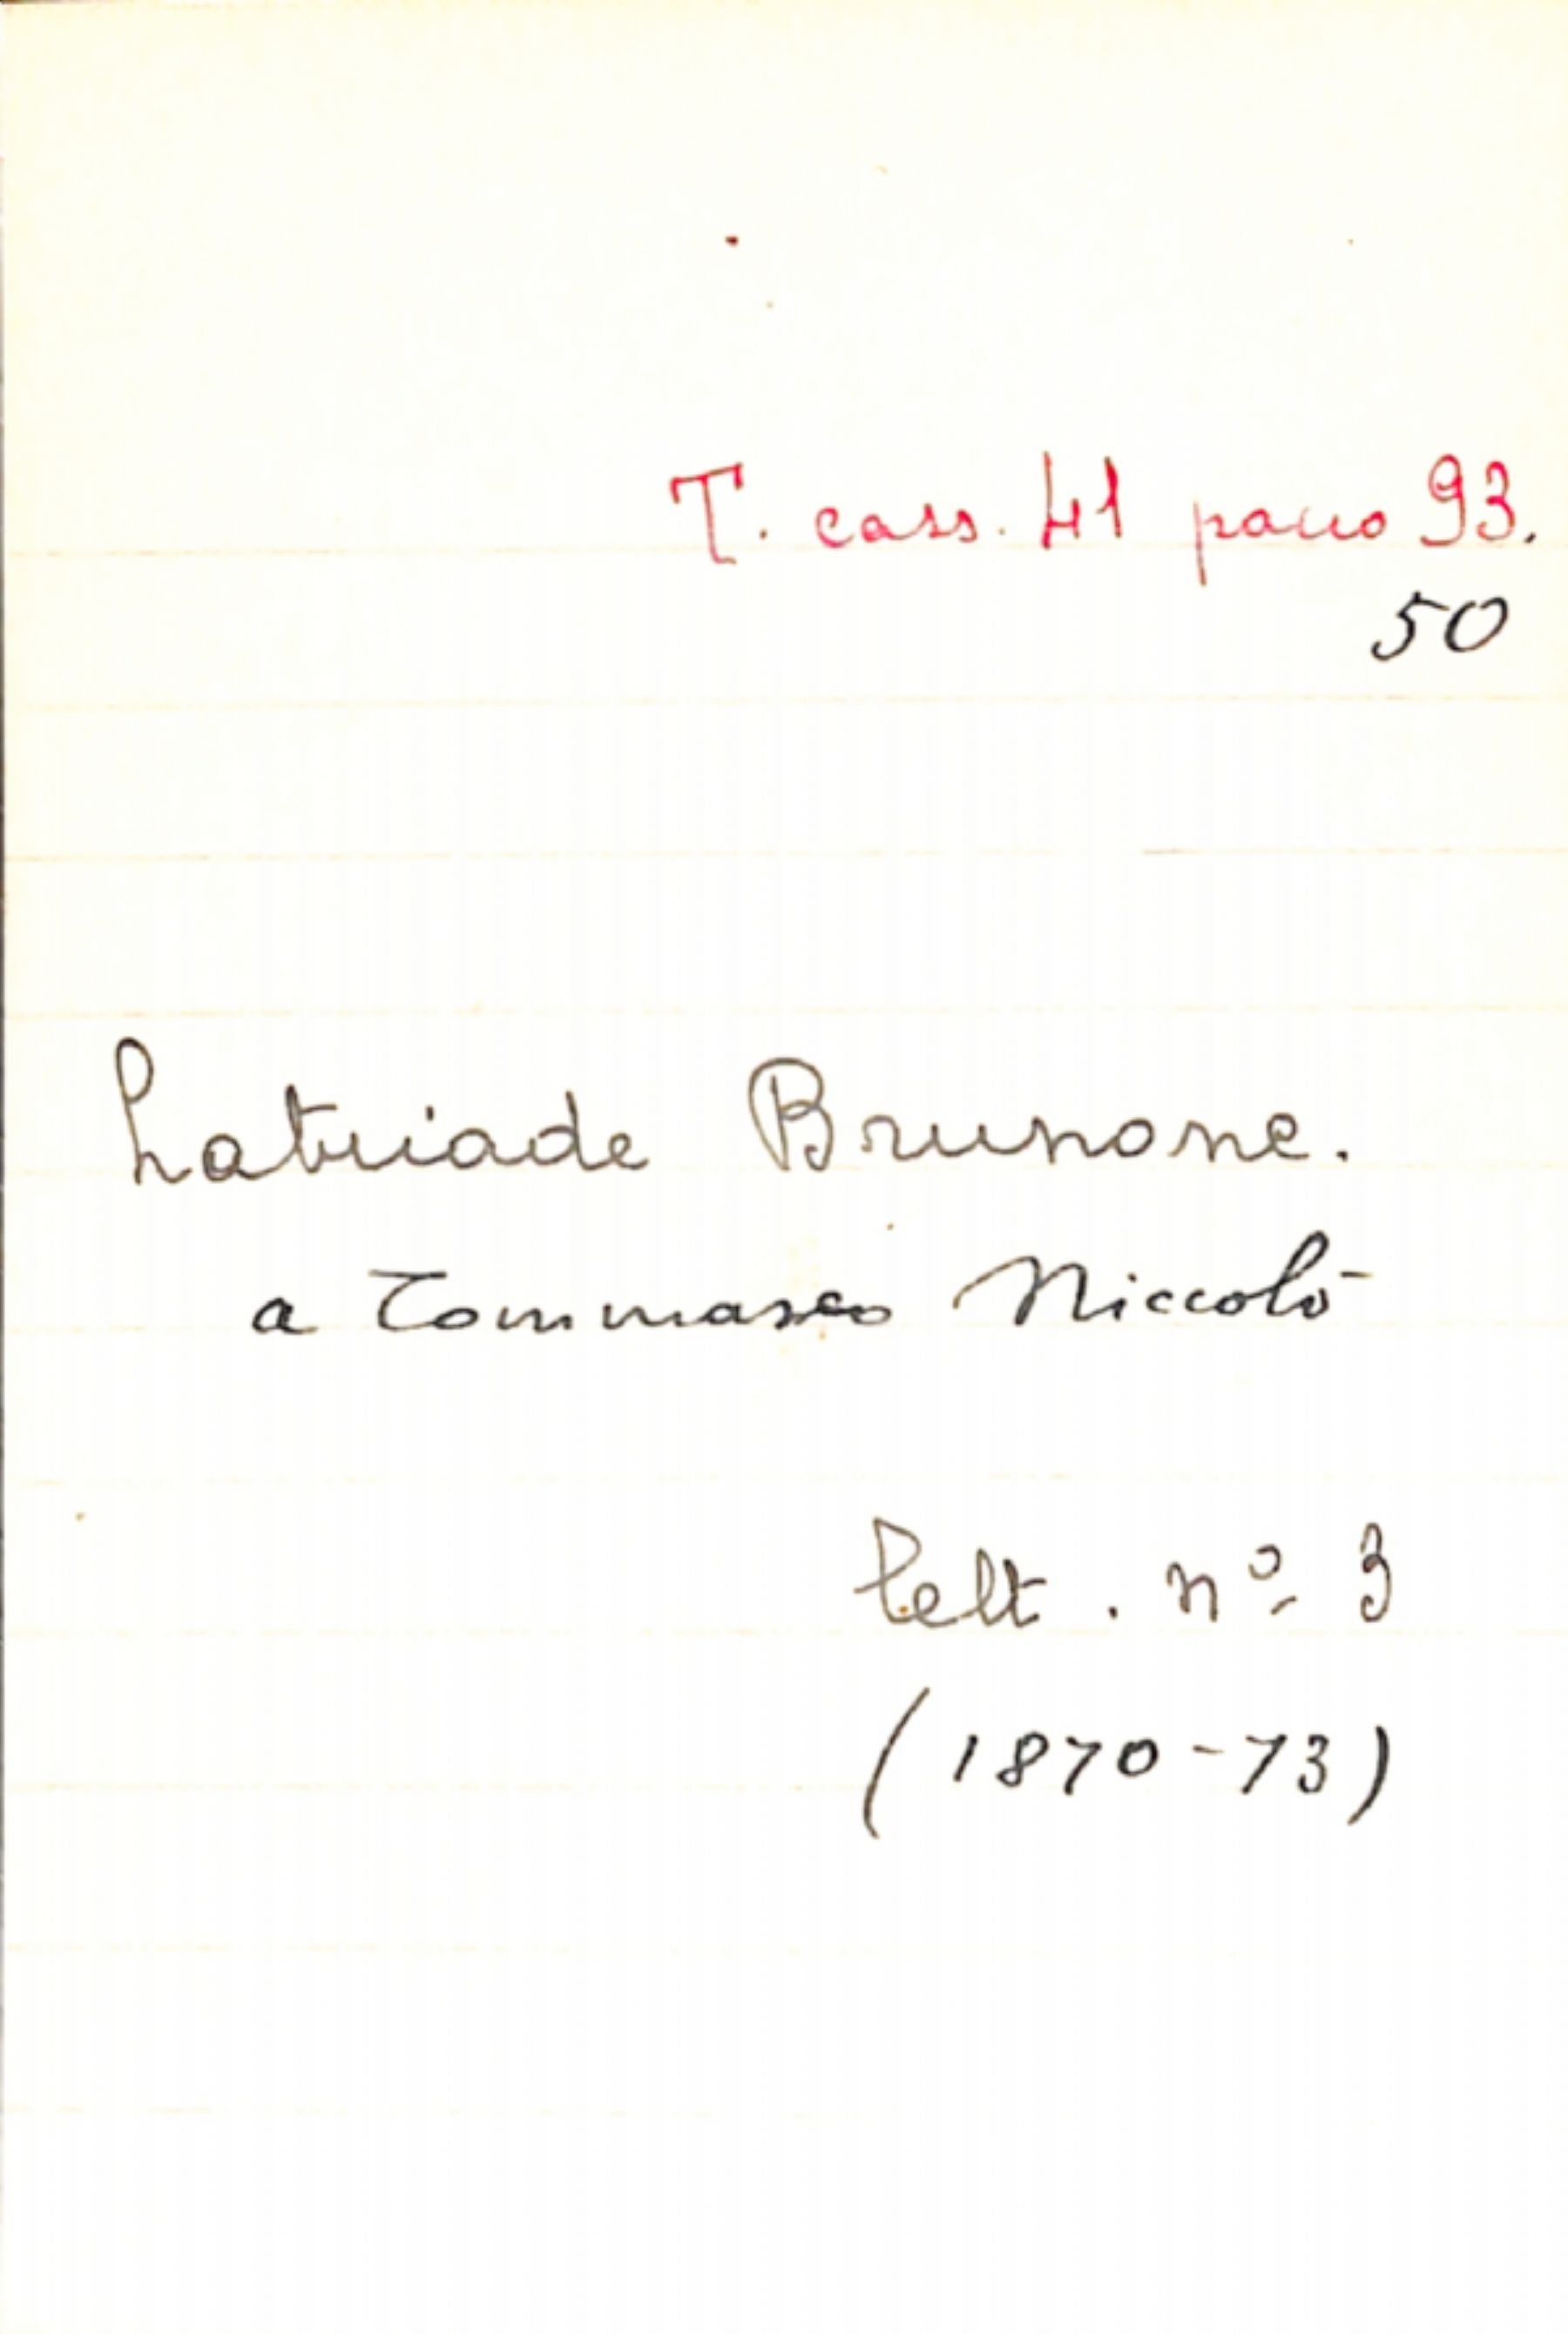 T. cass. 41 pacco 93.
50
Latuiade Brunone.
a Tommaseo Niccolò
Lett. nº 3
(1870-73)